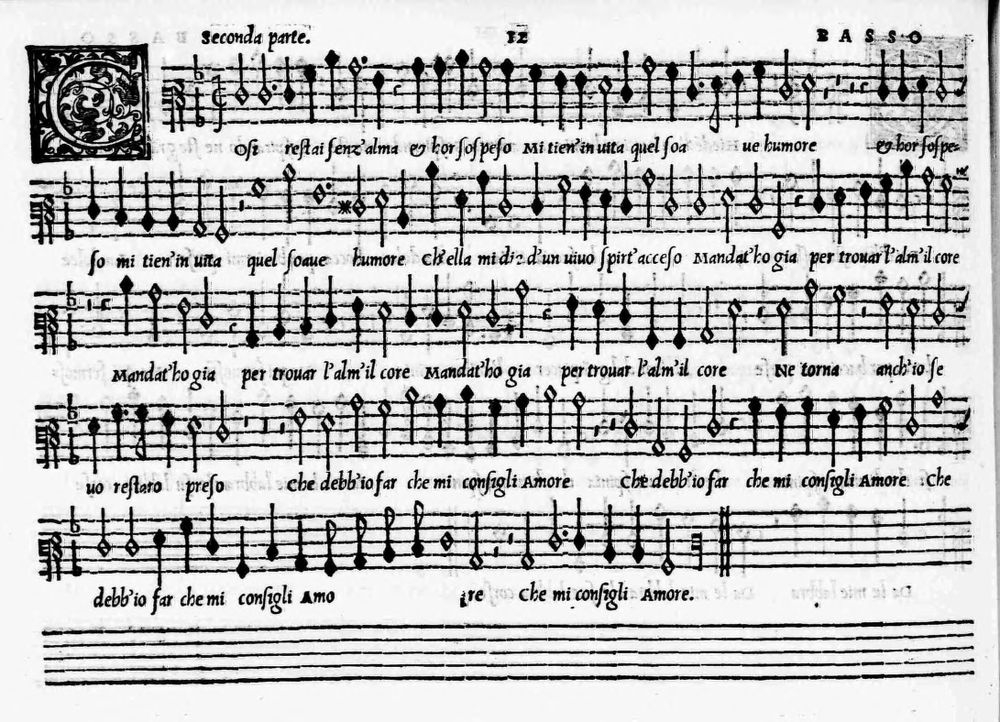 Seconda parte. 12 BASSO
COsi restai senz'alma & hor sospeso Mi tien'in uita quel soa ue humore & hor sospe-
so mi tien'in uita quel soaue humore Ch'ella mi diè d'un uiuo spirt'acceso Mandat'ho gia per trouar l'alm'il core
Mandat'ho gia per trouar l'alm'il core Mandat'ho gia per trouar l'alm'il core Ne torna anch'io se
uo restaro preso Che debb'io far che mi consigli Amore Che debb'io far che mi consigli Amore Che
debb'io far che mi consigli Amo re Che mi consigli Amore.